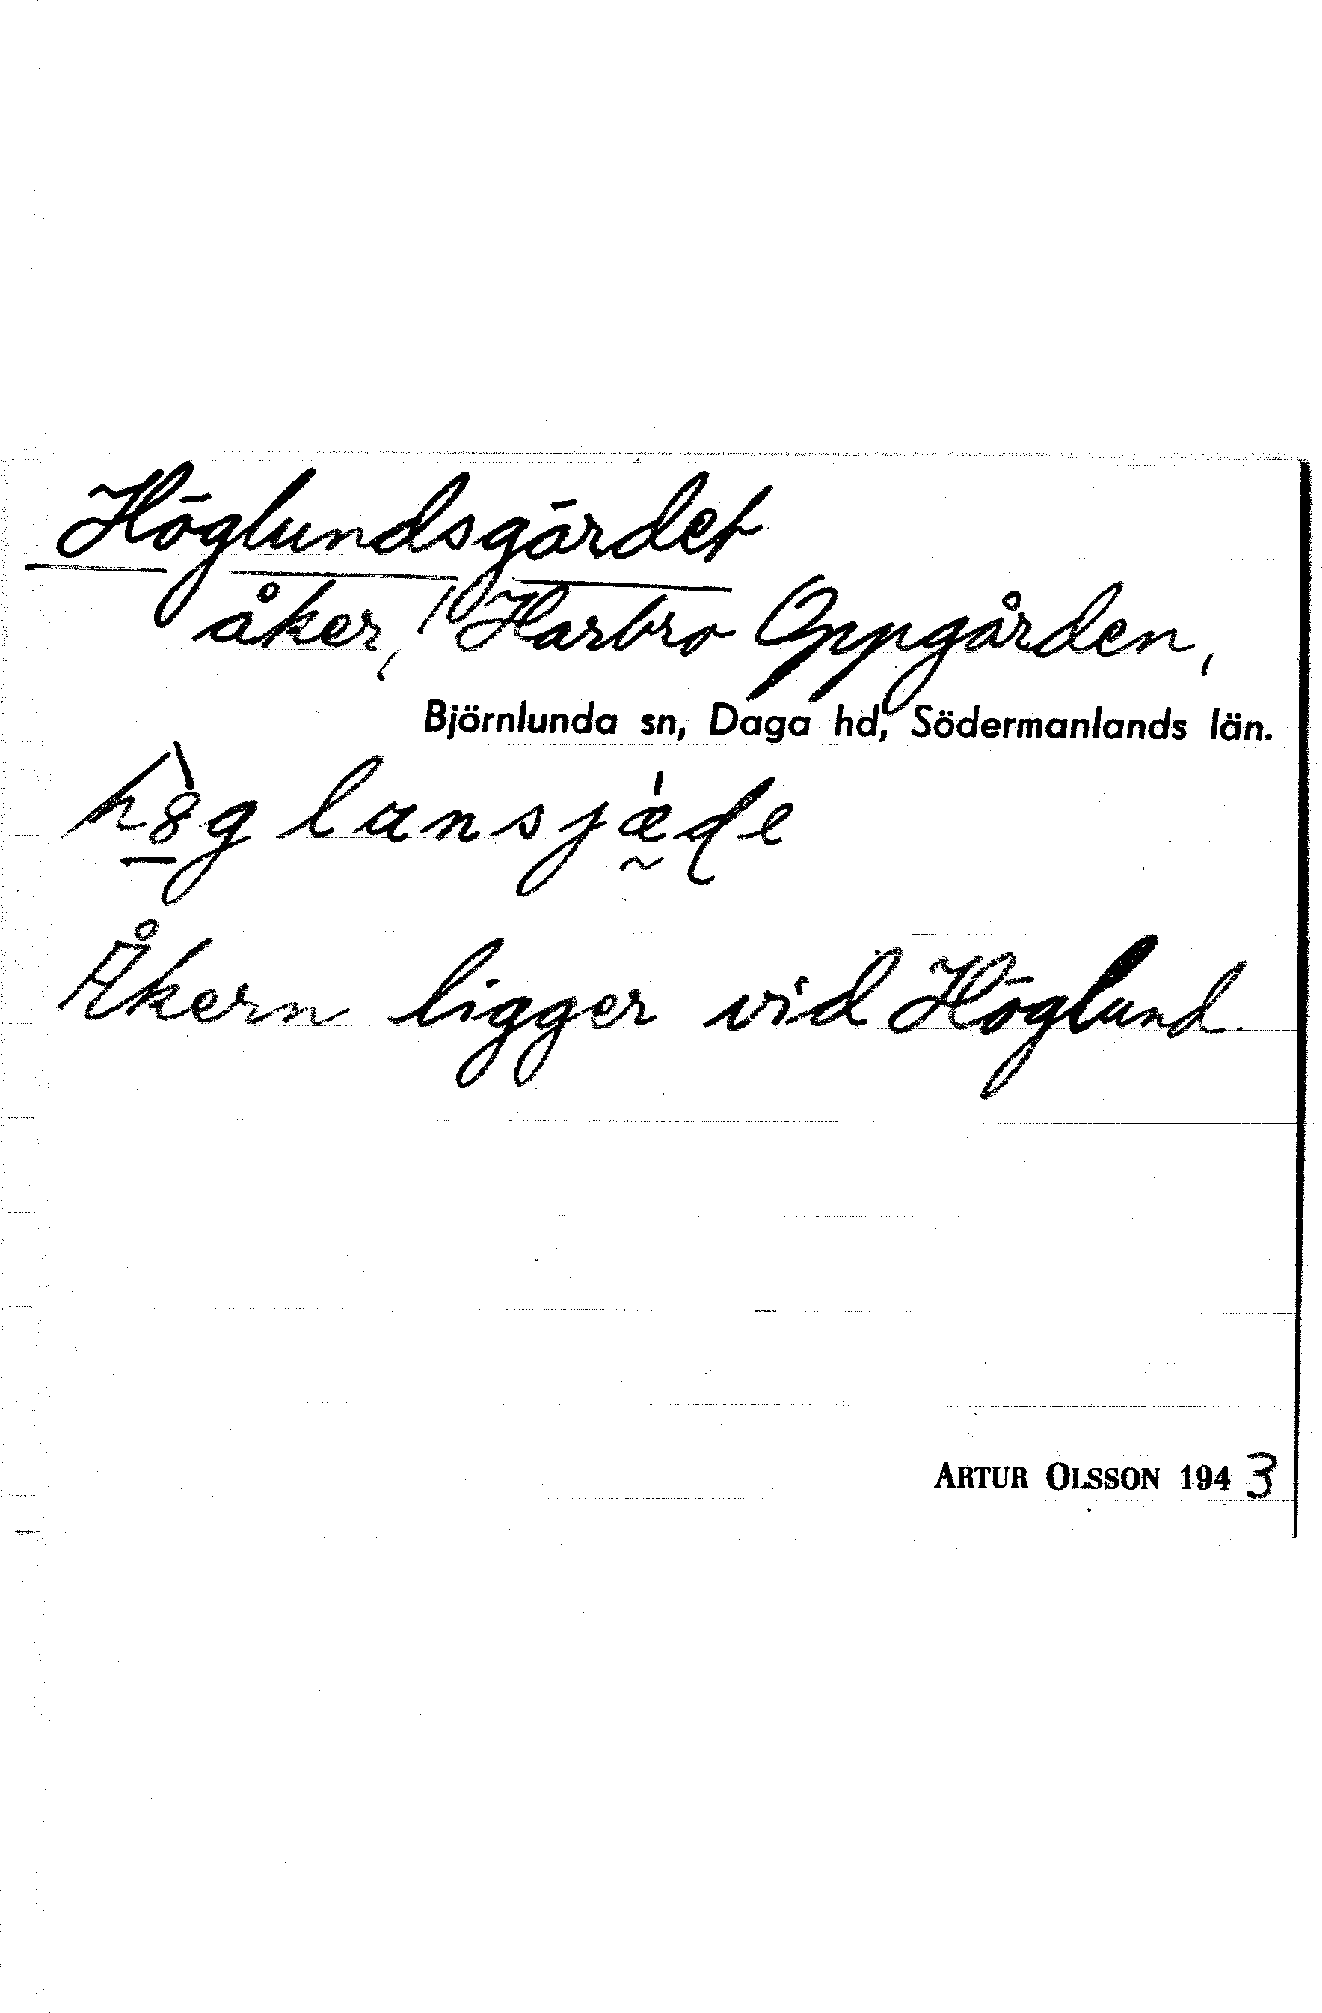 Höglundsgärdet
åker, Harbro Oppgården,
Björnlunda sn, Daga hd, Södermanlands län.
Åkern ligger vid Höglund.
ARTUR OLSSON 1943